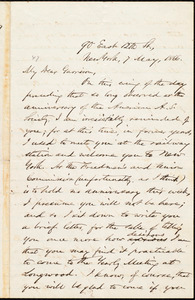 90 East 12th St.,
New York, 7 May, 186
My Dear Garrison,
On this eving of the day
preceding that so long observed as the
anniversary of the American A. S.
Society, I am irresistibly reminded of
you; for at this time, in former years,
I used to meet you at the railway
station and welcome you to New
York. As the
is to hold no anniversary this week,
I presume you will not be here;
and so I sit down to write you
a brief letter, for the sake of telling
you once more how I am
that you may find it practicable
to come to the Yearly Meeting at
Longwood. I know, of course, that
you will be glad to give your